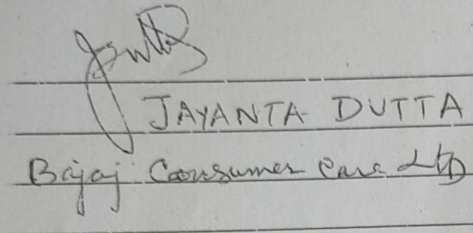 JAYANTA DUTTA
Bajaj Consumer Care LTD